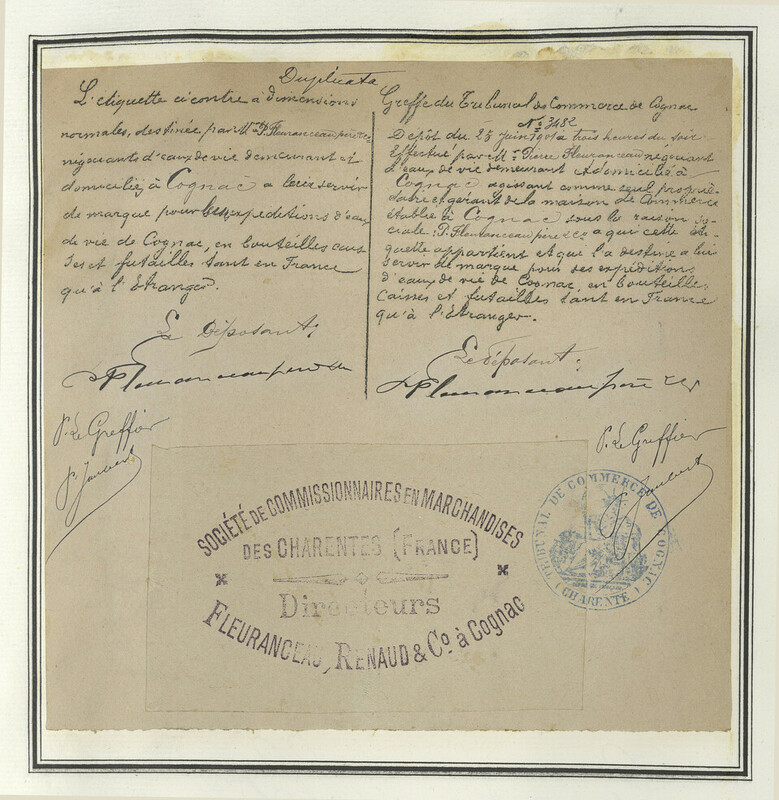 Duplicata
L'étiquette ci contre à dimensions
normales, destinée par Mrs P. Fleuranceau père & Co
négociants d'eaux de vie demeurant et
domiciliés à Cognac a leur servir
de marque pour leurs expéditions d'eaux
de vie de Cognac, en bouteilles cais
ses et futailles tant en France
qu'à l'Étranger.
Le Déposant;
P. Fleuranceau père & Co
P. Le Greffier
Greffe du Tribunal de Commerce de Cognac
No 3482
Dépôt du 25 juin 1901 à trois heures du soir
Effectué par Mr Pierre Fleuranceau négociant
d'eaux de vie demeurant et domicilié à
Cognac agissant comme seul proprié-
taire et gérant de la maison de commerce
établie à Cognac sous la raison so-
ciale P. Fleuranceau père & Co a qui cette éti-
quette appartient et que l'a destine a lui
servir de marque pour ses expéditions
d'eaux de vie de Cognac, en bouteilles
caisses et futailles tant en France
qu'à l'Étranger.
Le déposant;
P. Fleuranceau père & Co
P. Le Greffier
SOCIÉTÉ DE COMMISSIONNAIRES EN MARCHANDISES
DES CHARENTES (FRANCE)
Directeurs
FLEURANCEAU, RENAUD & Co. à Cognac
TRIBUNAL DE COMMERCE DE COGNAC
(CHARENTE)